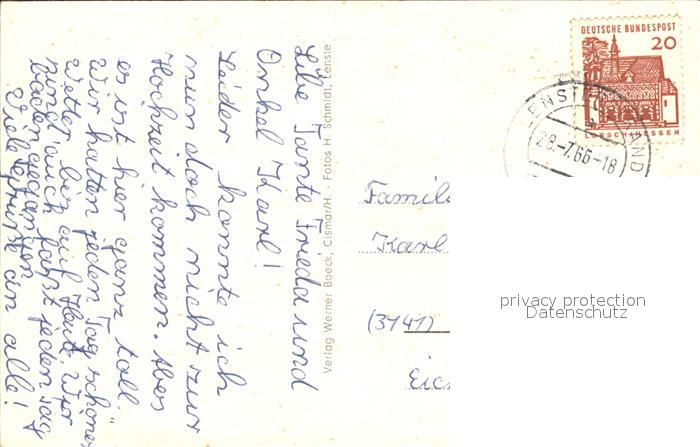 Liebe Tante Frieda und
Onkel Karl!
Leider konnte ich
nun doch nicht zur
Hochzeit kommen. Aber
es ist hier ganz toll.
Wir hatten jeden Tag schönes
Wetter bis auf Heute. Wir
sind auch fast jeden Tag
baden gegangen
Viele Grüße an alle!
Verlag Werner Boeck, Cismar/H. - Fotos H. Schmidt, Lenste
DEUTSCHE BUNDESPOST
20
LORSCH/HESSEN
28.-7.66-18
Famil
Karl
(3141)
privacy protection
Datenschutz